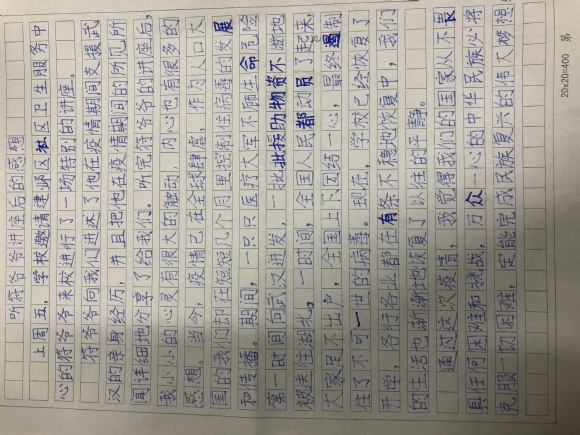 听符爷爷讲座后的感想
上周五，学校邀请建邺区社区卫生服务中
心的符爷爷来校进行了一场特别的讲座。
符爷爷向我们讲述了他在疫情期间支援武
汉的亲身经历，并且把他在疫情期间的所见所
闻详细地分享了给我们。听完符爷爷的讲座后，
我小小的心灵有很大的触动，内心也有很多的
感想。当今，疫情已在全球肆虐，作为人口大
国的我们却在短短几个月里控制住病毒的发展
和传播。期间，一只只医疗大军不顾生命危险
第一时间向武汉进发，一批批援助物资不断地
被送往湖北。一时间，全国人民都动员了起来
大家足不出户，全国上下团结一心，最终遏制
住了不可一世的病毒。现在，学校已经恢复了
开学，各行各业都在有条不稳地恢复中，我们
的生活也渐渐地恢复了以往的平静。
通过这次疫情，我觉得我们的国家从不畏
惧任何困难和挑战，万众一心的中华民族必将
克服一切困难，定能完成民族复兴的伟大梦想
20×20=400 第